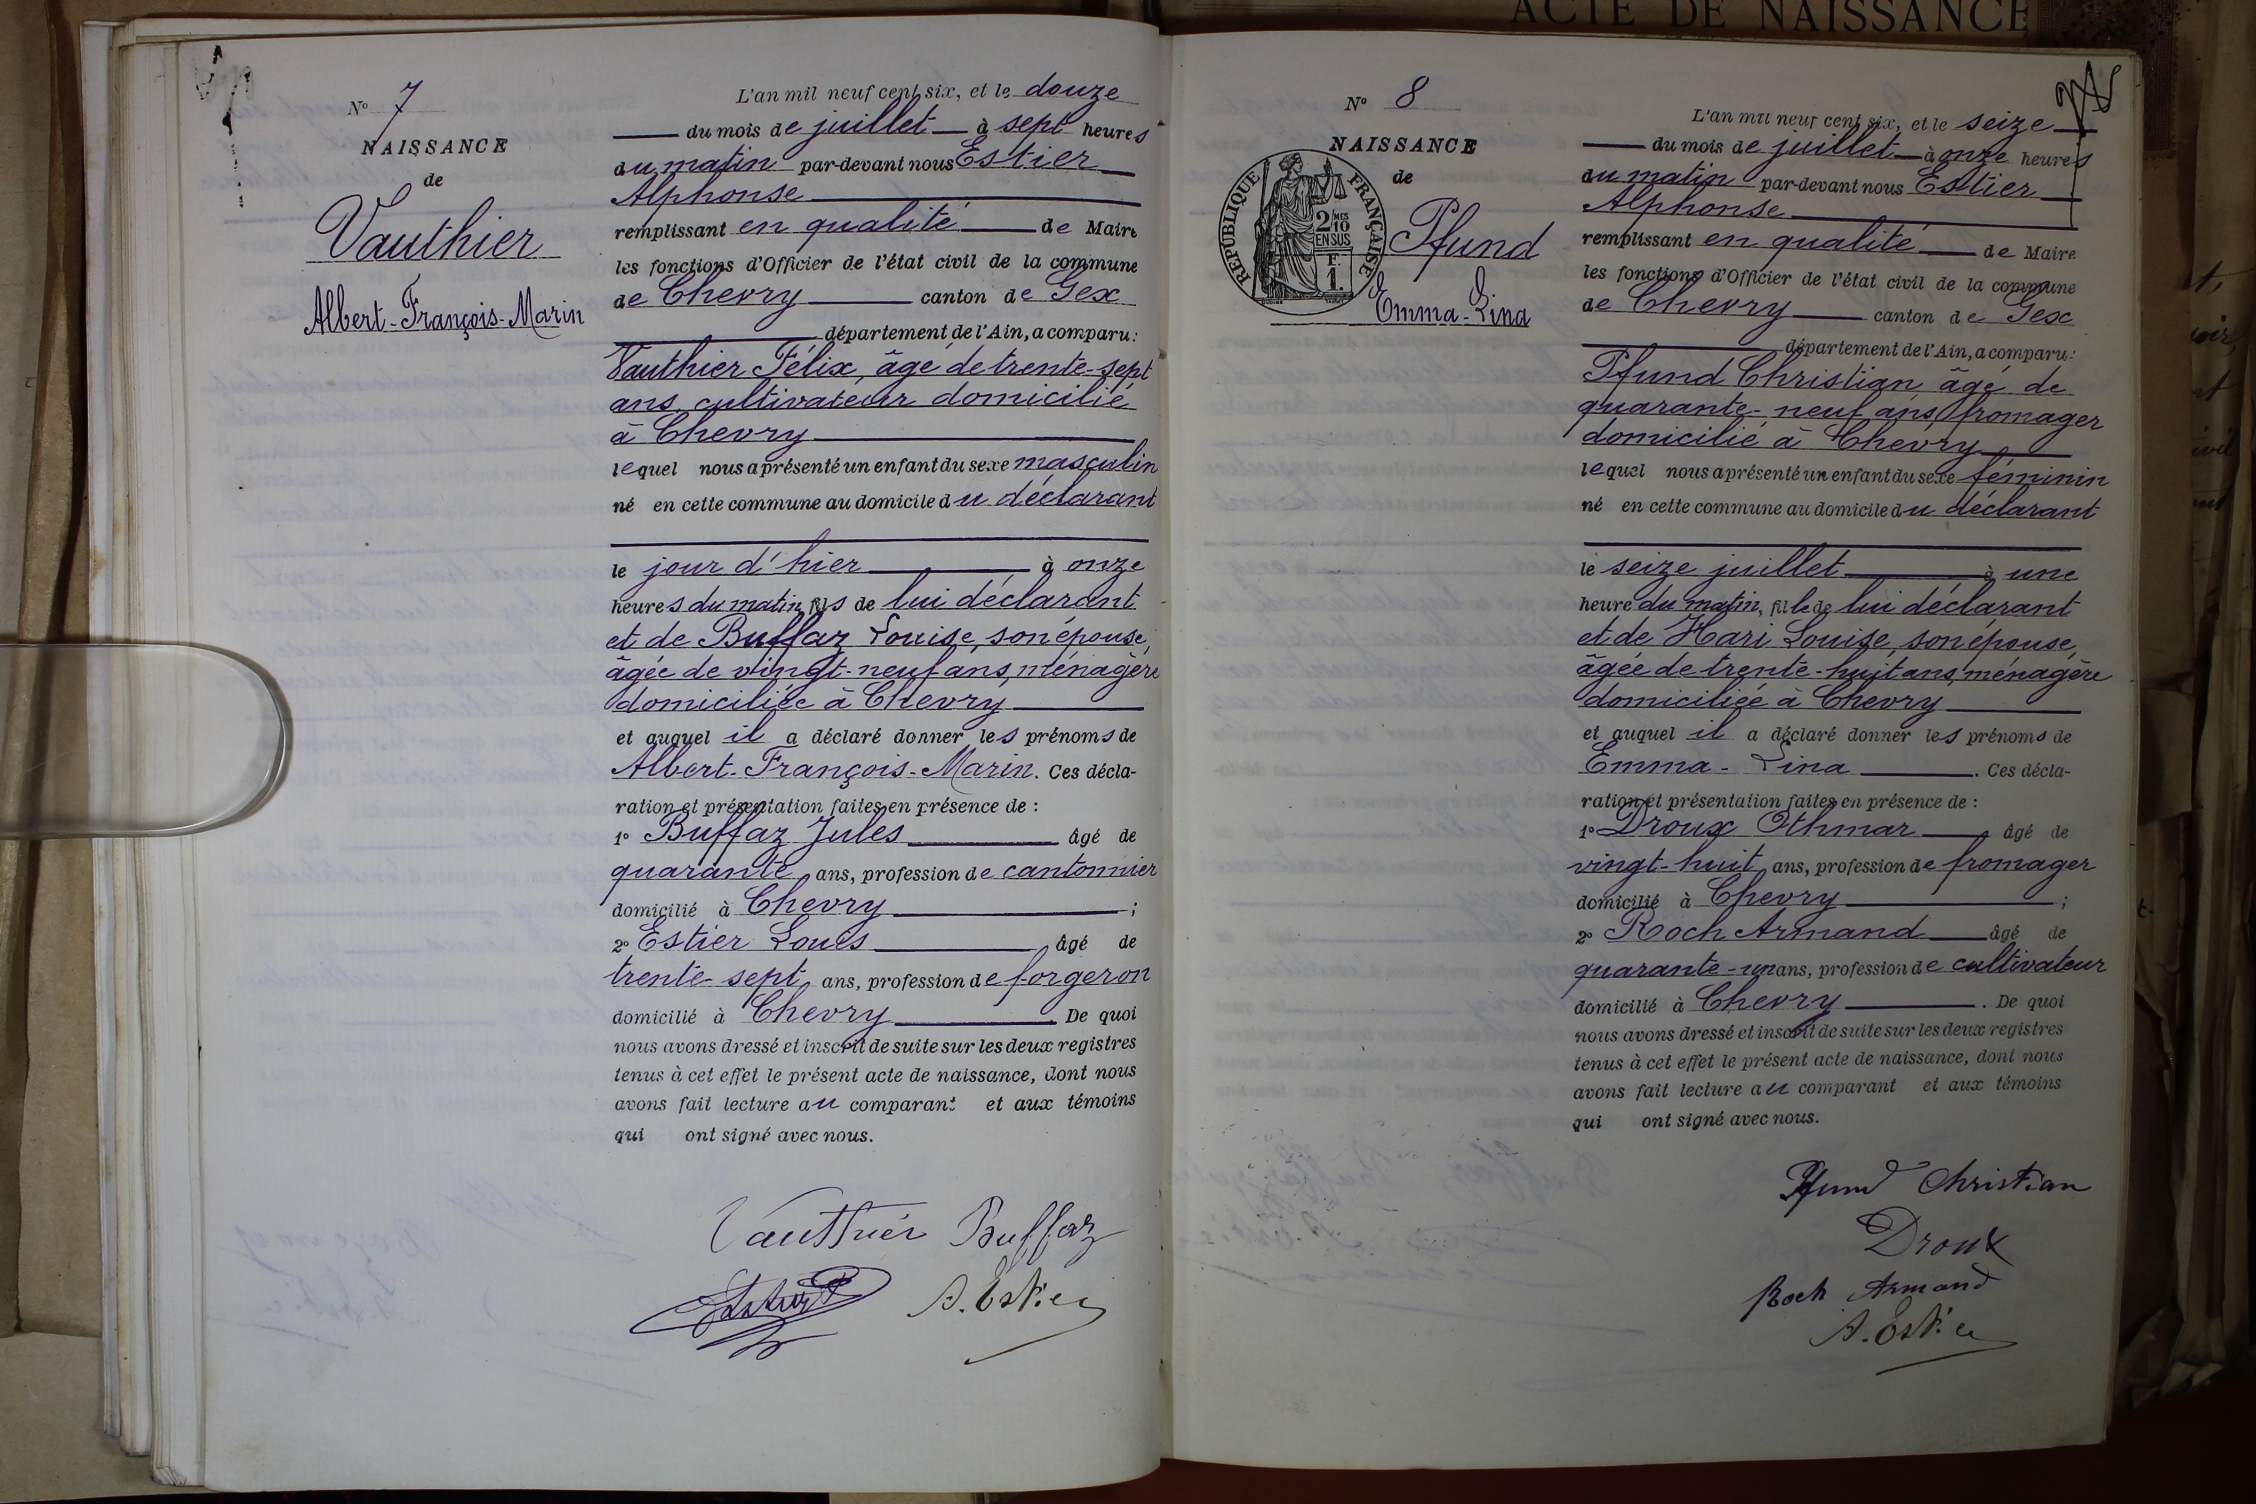 ACTE DE NAISSANCE
N° 7
NAISSANCE
de
Vauthier
Albert-François-Marin
L'an mil neuf cent six, et le douze
du mois de juillet à sept heures
du matin par-devant nous Estier
Alphonse
remplissant en qualité de Maire
les fonctions d'Officier de l'état civil de la commune
de Chevry canton de Gex
département de l'Ain, a comparu:
Vauthier Félix, âgé de trente-sept
ans, cultivateur domicilié
à Chevry
lequel nous a présenté un enfant du sexe masculin
né en cette commune au domicile du déclarant
le jour d'hier à onze
heures du matin, fils de lui déclarant
et de Buffaz Louise, son épouse,
âgée de vingt-neuf ans, ménagère
domiciliée à Chevry
et auquel il a déclaré donner les prénoms de
Albert-François-Marin. Ces décla-
ration et présentation faites en présence de :
1° Buffaz Jules âgé de
quarante ans, profession de cantonnier
domicilié à Chevry ;
2° Estier Louis âgé de
trente-sept ans, profession de forgeron
domicilié à Chevry De quoi
nous avons dressé et inscrit de suite sur les deux registres
tenus à cet effet le présent acte de naissance, dont nous
avons fait lecture au comparant et aux témoins
qui ont signé avec nous.
Vauthier Buffaz
A. Estier
N° 8
NAISSANCE
de
RÉPUBLIQUE FRANÇAISE
2/10 MES
EN SUS
F.
1.
Pfund
Emma-Lina
L'an mil neuf cent six, et le seize
du mois de juillet à onze heures
du matin par-devant nous Estier
Alphonse
remplissant en qualité de Maire
les fonctions d'Officier de l'état civil de la commune
de Chevry canton de Gex
département de l'Ain, a comparu:
Pfund Christian âgé de
quarante-neuf ans, fromager
domicilié à Chevry
lequel nous a présenté un enfant du sexe féminin
né en cette commune au domicile du déclarant
le seize juillet à une
heure du matin, fille de lui déclarant
et de Hari Louise, son épouse,
âgée de trente-huit ans, ménagère
domiciliée à Chevry
et auquel il a déclaré donner les prénoms de
Emma-Lina. Ces décla-
ration et présentation faites en présence de :
1° Droux Othmar âgé de
vingt-huit ans, profession de fromager
domicilié à Chevry ;
2° Roch Armand âgé de
quarante-un ans, profession de cultivateur
domicilié à Chevry. De quoi
nous avons dressé et inscrit de suite sur les deux registres
tenus à cet effet le présent acte de naissance, dont nous
avons fait lecture au comparant et aux témoins
qui ont signé avec nous.
Pfund Christian
Droux
Roch Armand
A. Estier